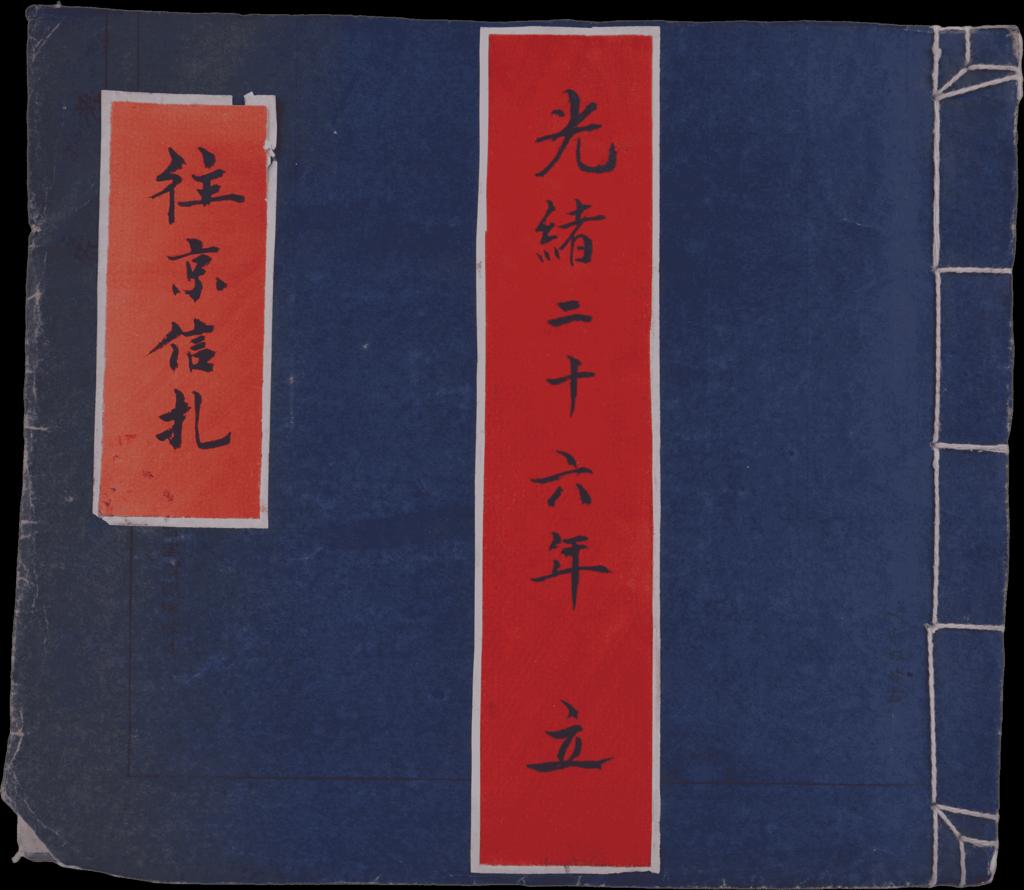 光緒二十六年 立
往京信札